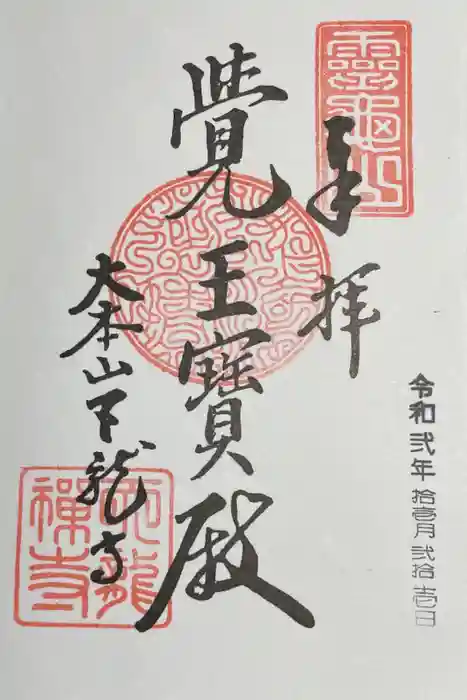 令和弐年拾壹月弐拾壹日
靈龜山
奉拝
覺王寶殿
大本山天龍寺
天龍禪寺